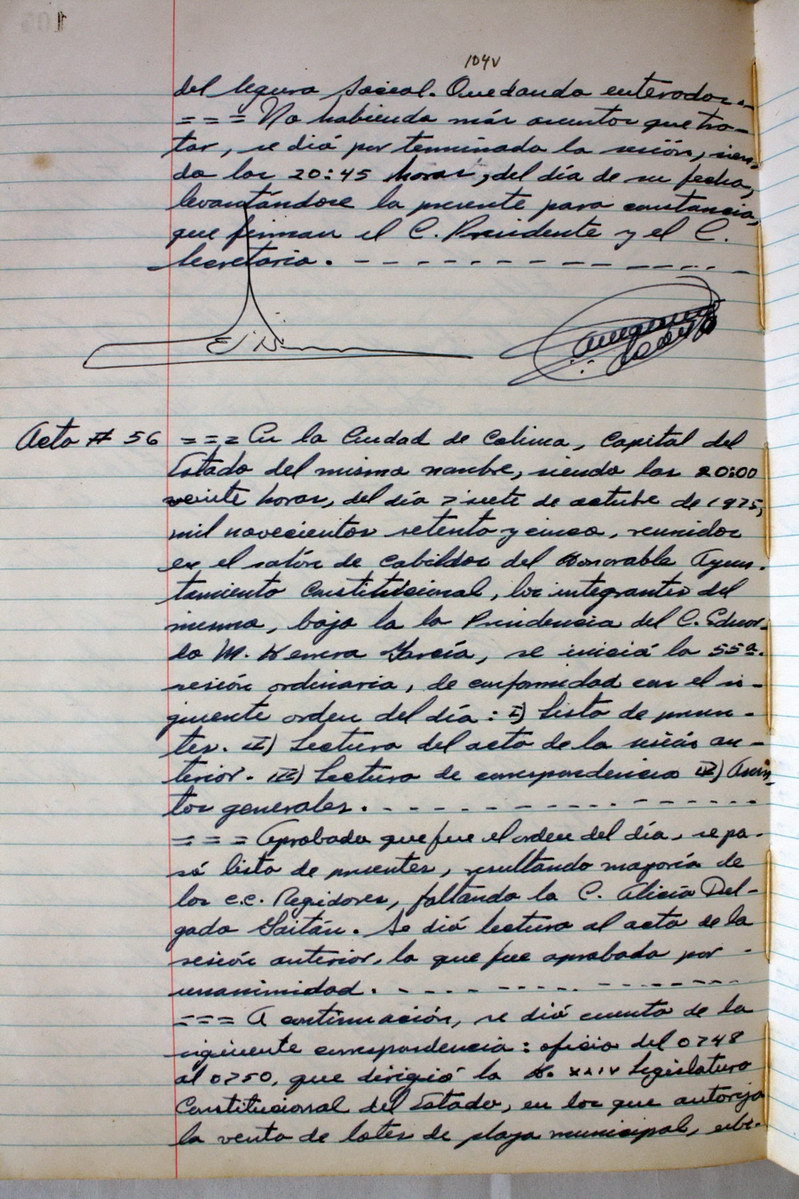 104v
del Seguro Social. Quedando enterados.-
=== No habiendo más asuntos que tra-
tar, se dió por terminada la sesión, sien-
do las 20:45 horas, del día de su fecha,
levantándose la presente para constancia,
que firman el C. Presidente y el C.
Secretario. - - - - - - - - - - - -
Acta # 56 === En la Ciudad de Colima, Capital del
Estado del mismo nombre, siendo las 20:00
veinte horas, del día 7 siete de octubre de 1975,
mil novecientos setenta y cinco, reunidos
en el salón de Cabildos del Honorable Ayun-
tamiento Constitucional, los integrantes del
mismo, bajo la la Presidencia del C. Eduar-
do M. Herrera García, se inició la 55a.
sesión ordinaria, de conformidad con el si-
guiente orden del día: I) Lista de presen-
tes. II) Lectura del acta de la sesión an-
terior. III) Lectura de correspondencia IV) Asun-
tos generales. - - - - - - - - - - - -
=== Aprobado que fue el orden del día, se pa-
só lista de presentes, resultando mayoría de
los c.c. Regidores, faltando la C. Alicia Del-
gado Gaitán. Se dió lectura al acta de la
sesión anterior, la que fue aprobada por -
unanimidad. - - - - - - - - - - - -
=== A continuación, se dió cuenta de la
siguiente correspondencia: oficio del 0748
al 0750, que dirigió la H. XLIV Legislatura
Constitucional del Estado, en los que autoriza
la venta de lotes de playa municipal, ubi-